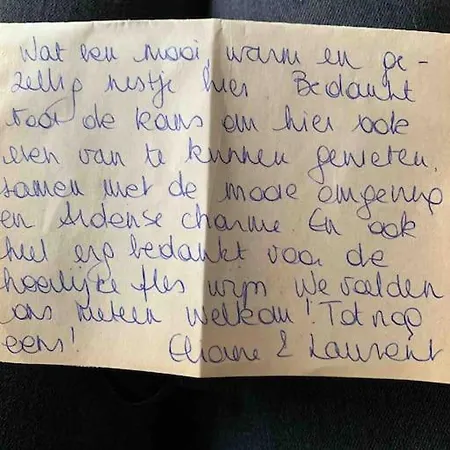 Wat een mooi, warm en ge-
zellig nestje hier. Bedankt
voor de kans om hier ook
even van te kunnen genieten,
samen met de mooie omgeving
en Ardense charme. En ook
heel erg bedankt voor de
heerlijke fles wijn. We voelden
ons meteen welkom! Tot nog
eens! & Laurent